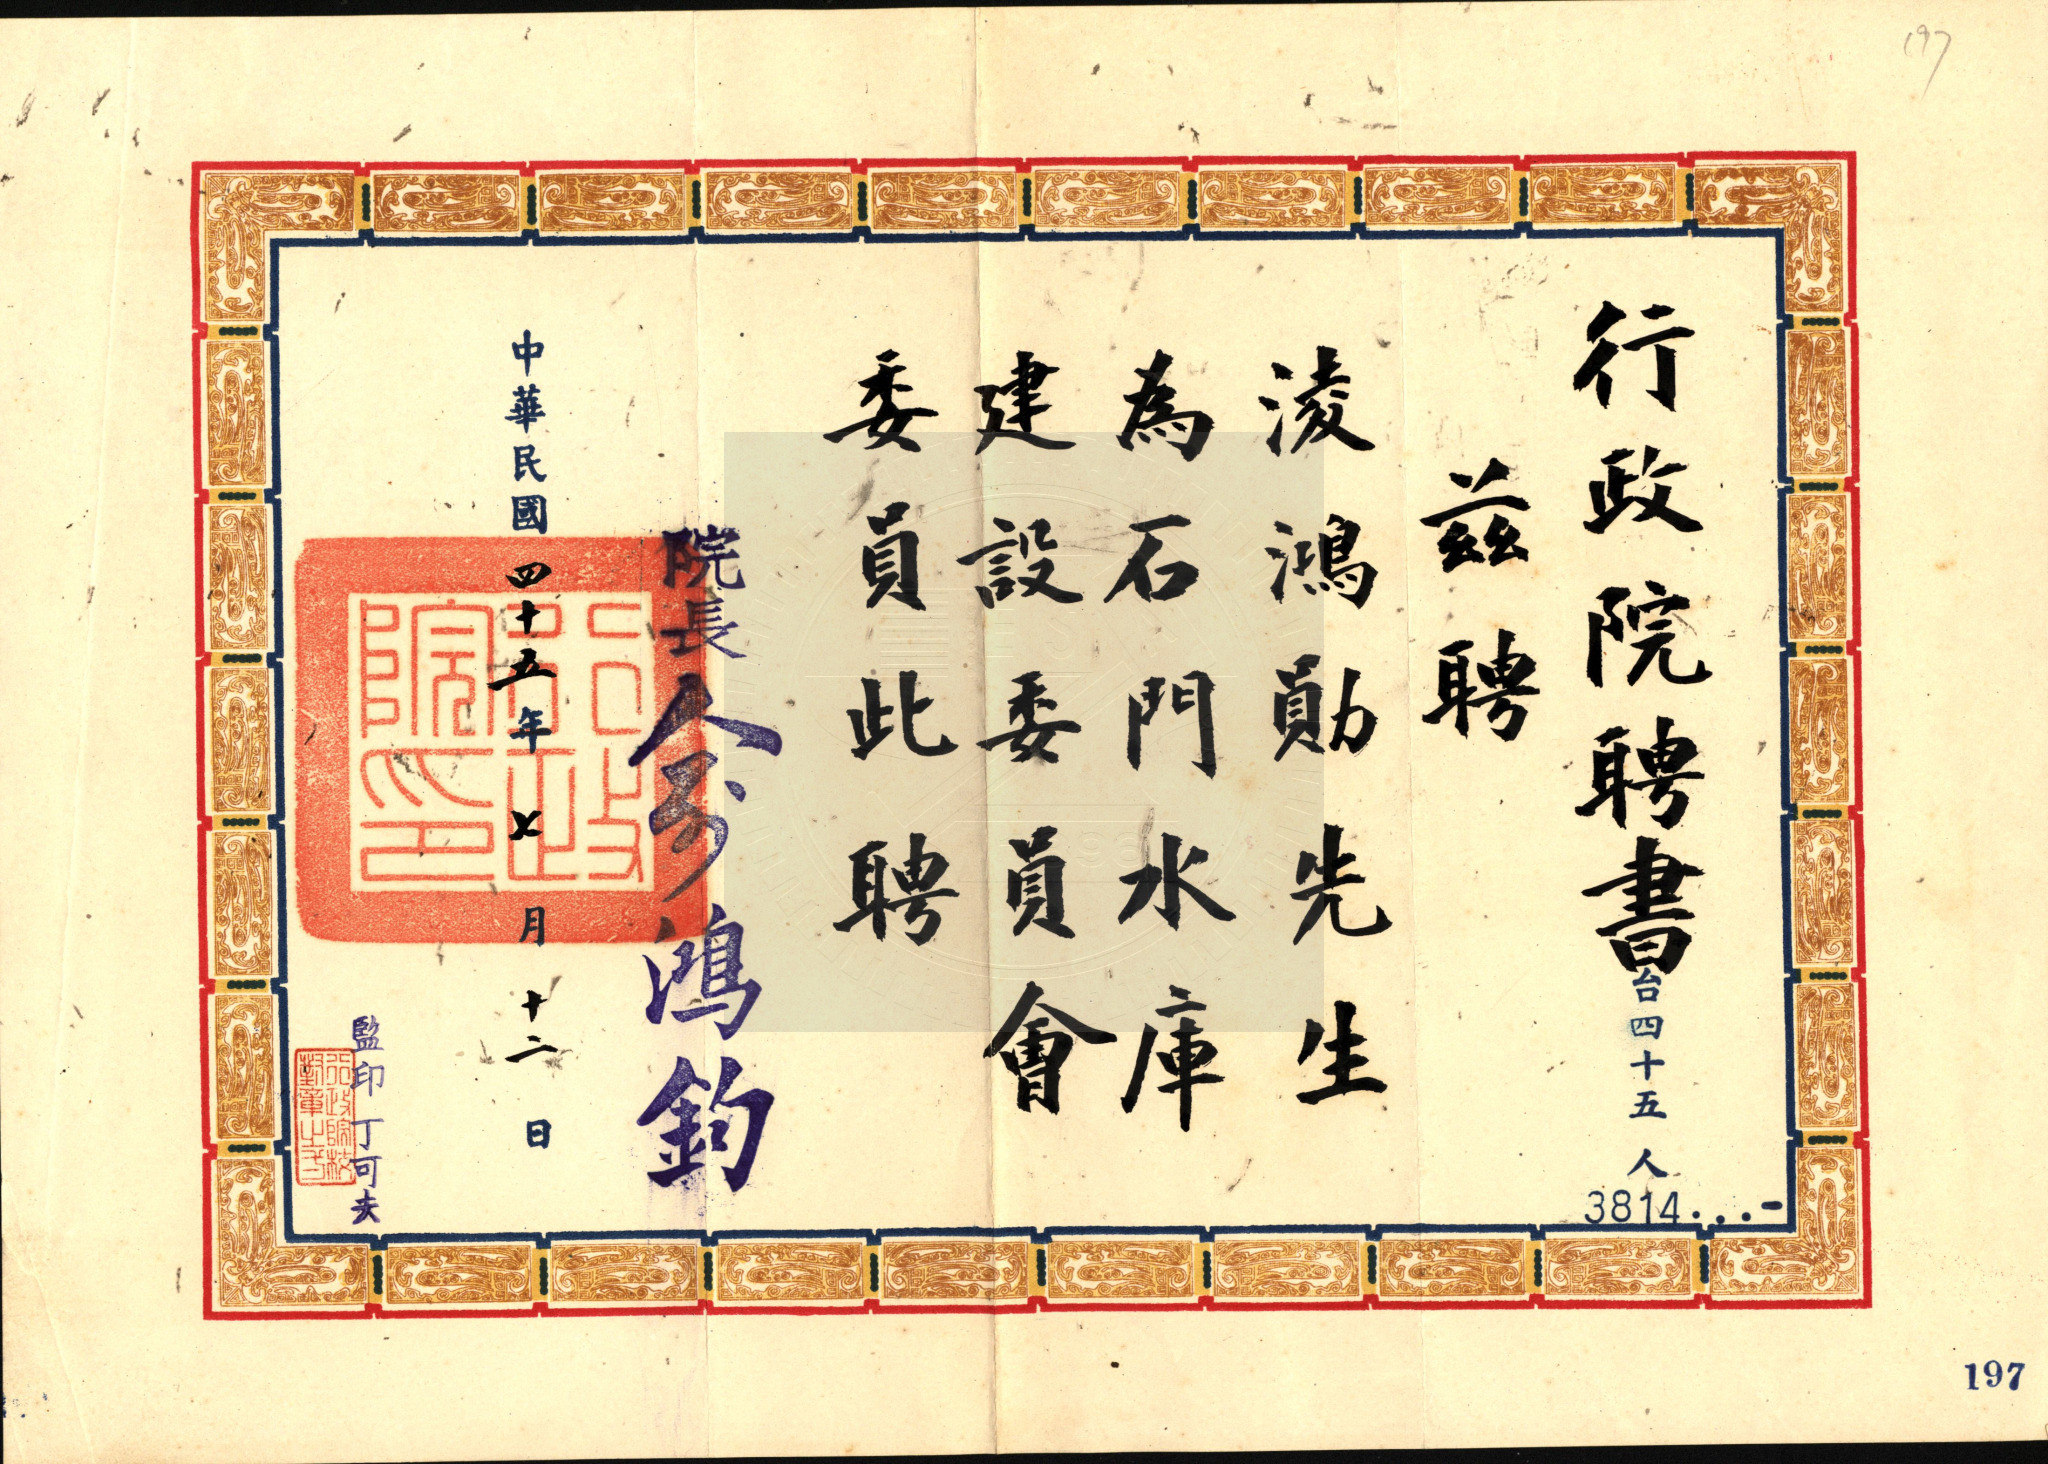 197
行政院聘書
台四十五人
3814...-
茲聘
淩鴻勛先生
為石門水庫
建設委員會
委員此聘
院長俞鴻鈞
中華民國四十五年七月十二日
行政院印
監印丁可夫
行政院校對章之弍
197